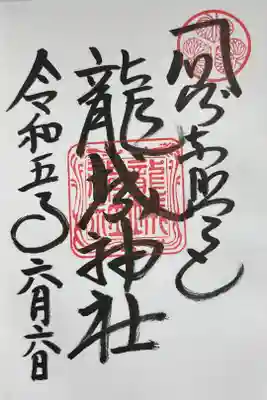 岡崎東照宮
龍城神社
令和五年六月六日